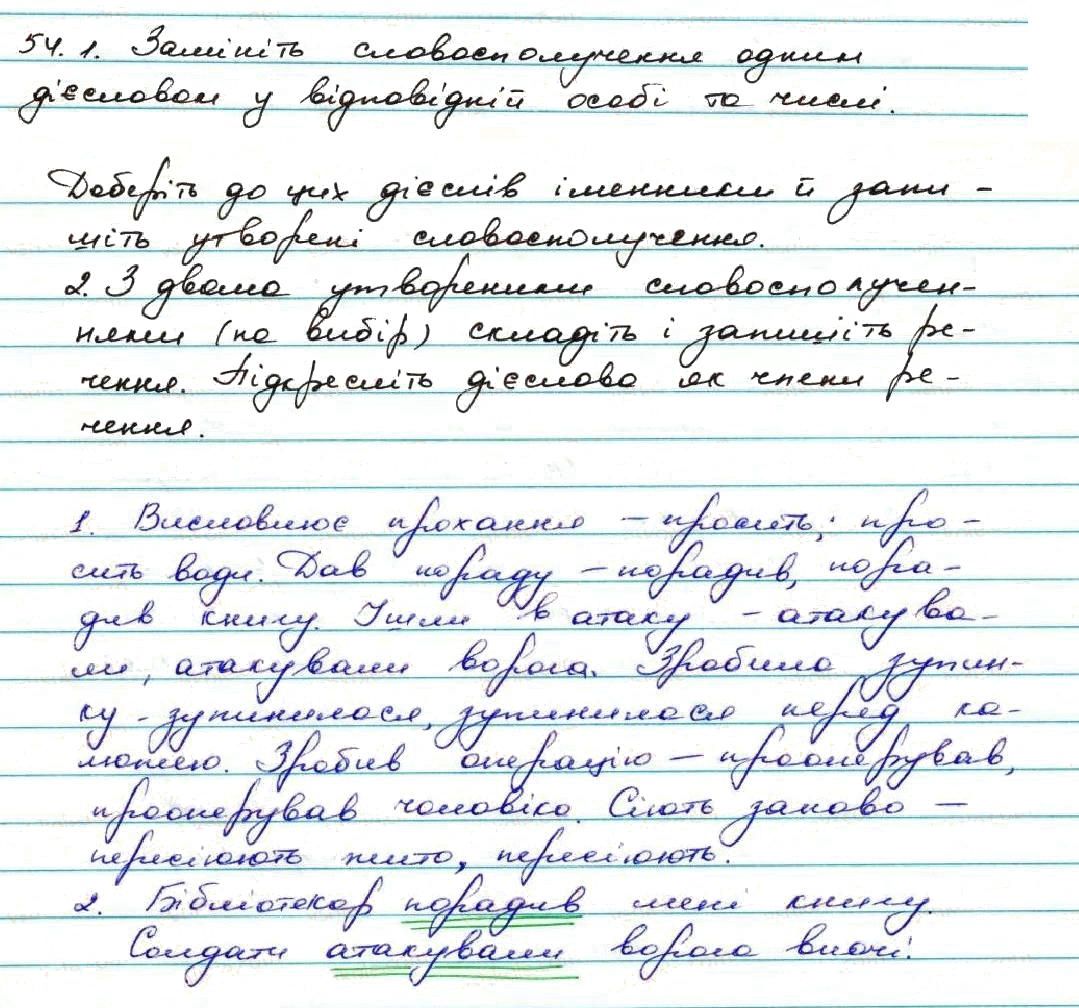 54. 1. Замініть словосполучення одним
дієсловом у відповідній особі та числі.
Доберіть до цих дієслів іменники й запи-
шіть утворені словосполучення.
2. З двома утвореними словосполучен-
нями (на вибір) складіть і запишіть ре-
чення. Підкресліть дієслова як члени ре-
чення.
1. Висловлює прохання – просить; про-
сить води. Дав пораду – порадив, пора-
див книгу. Ішли в атаку – атакува-
ли, атакували ворога. Зробила зупин-
ку - зупинилася, зупинилася перед ка-
люжею. Зробив операцію – прооперував,
прооперував чоловіка. Сіють заново –
пересіюють жито, пересіюють.
2. Бібліотекар порадив мені книгу.
Солдати атакували ворога вночі.